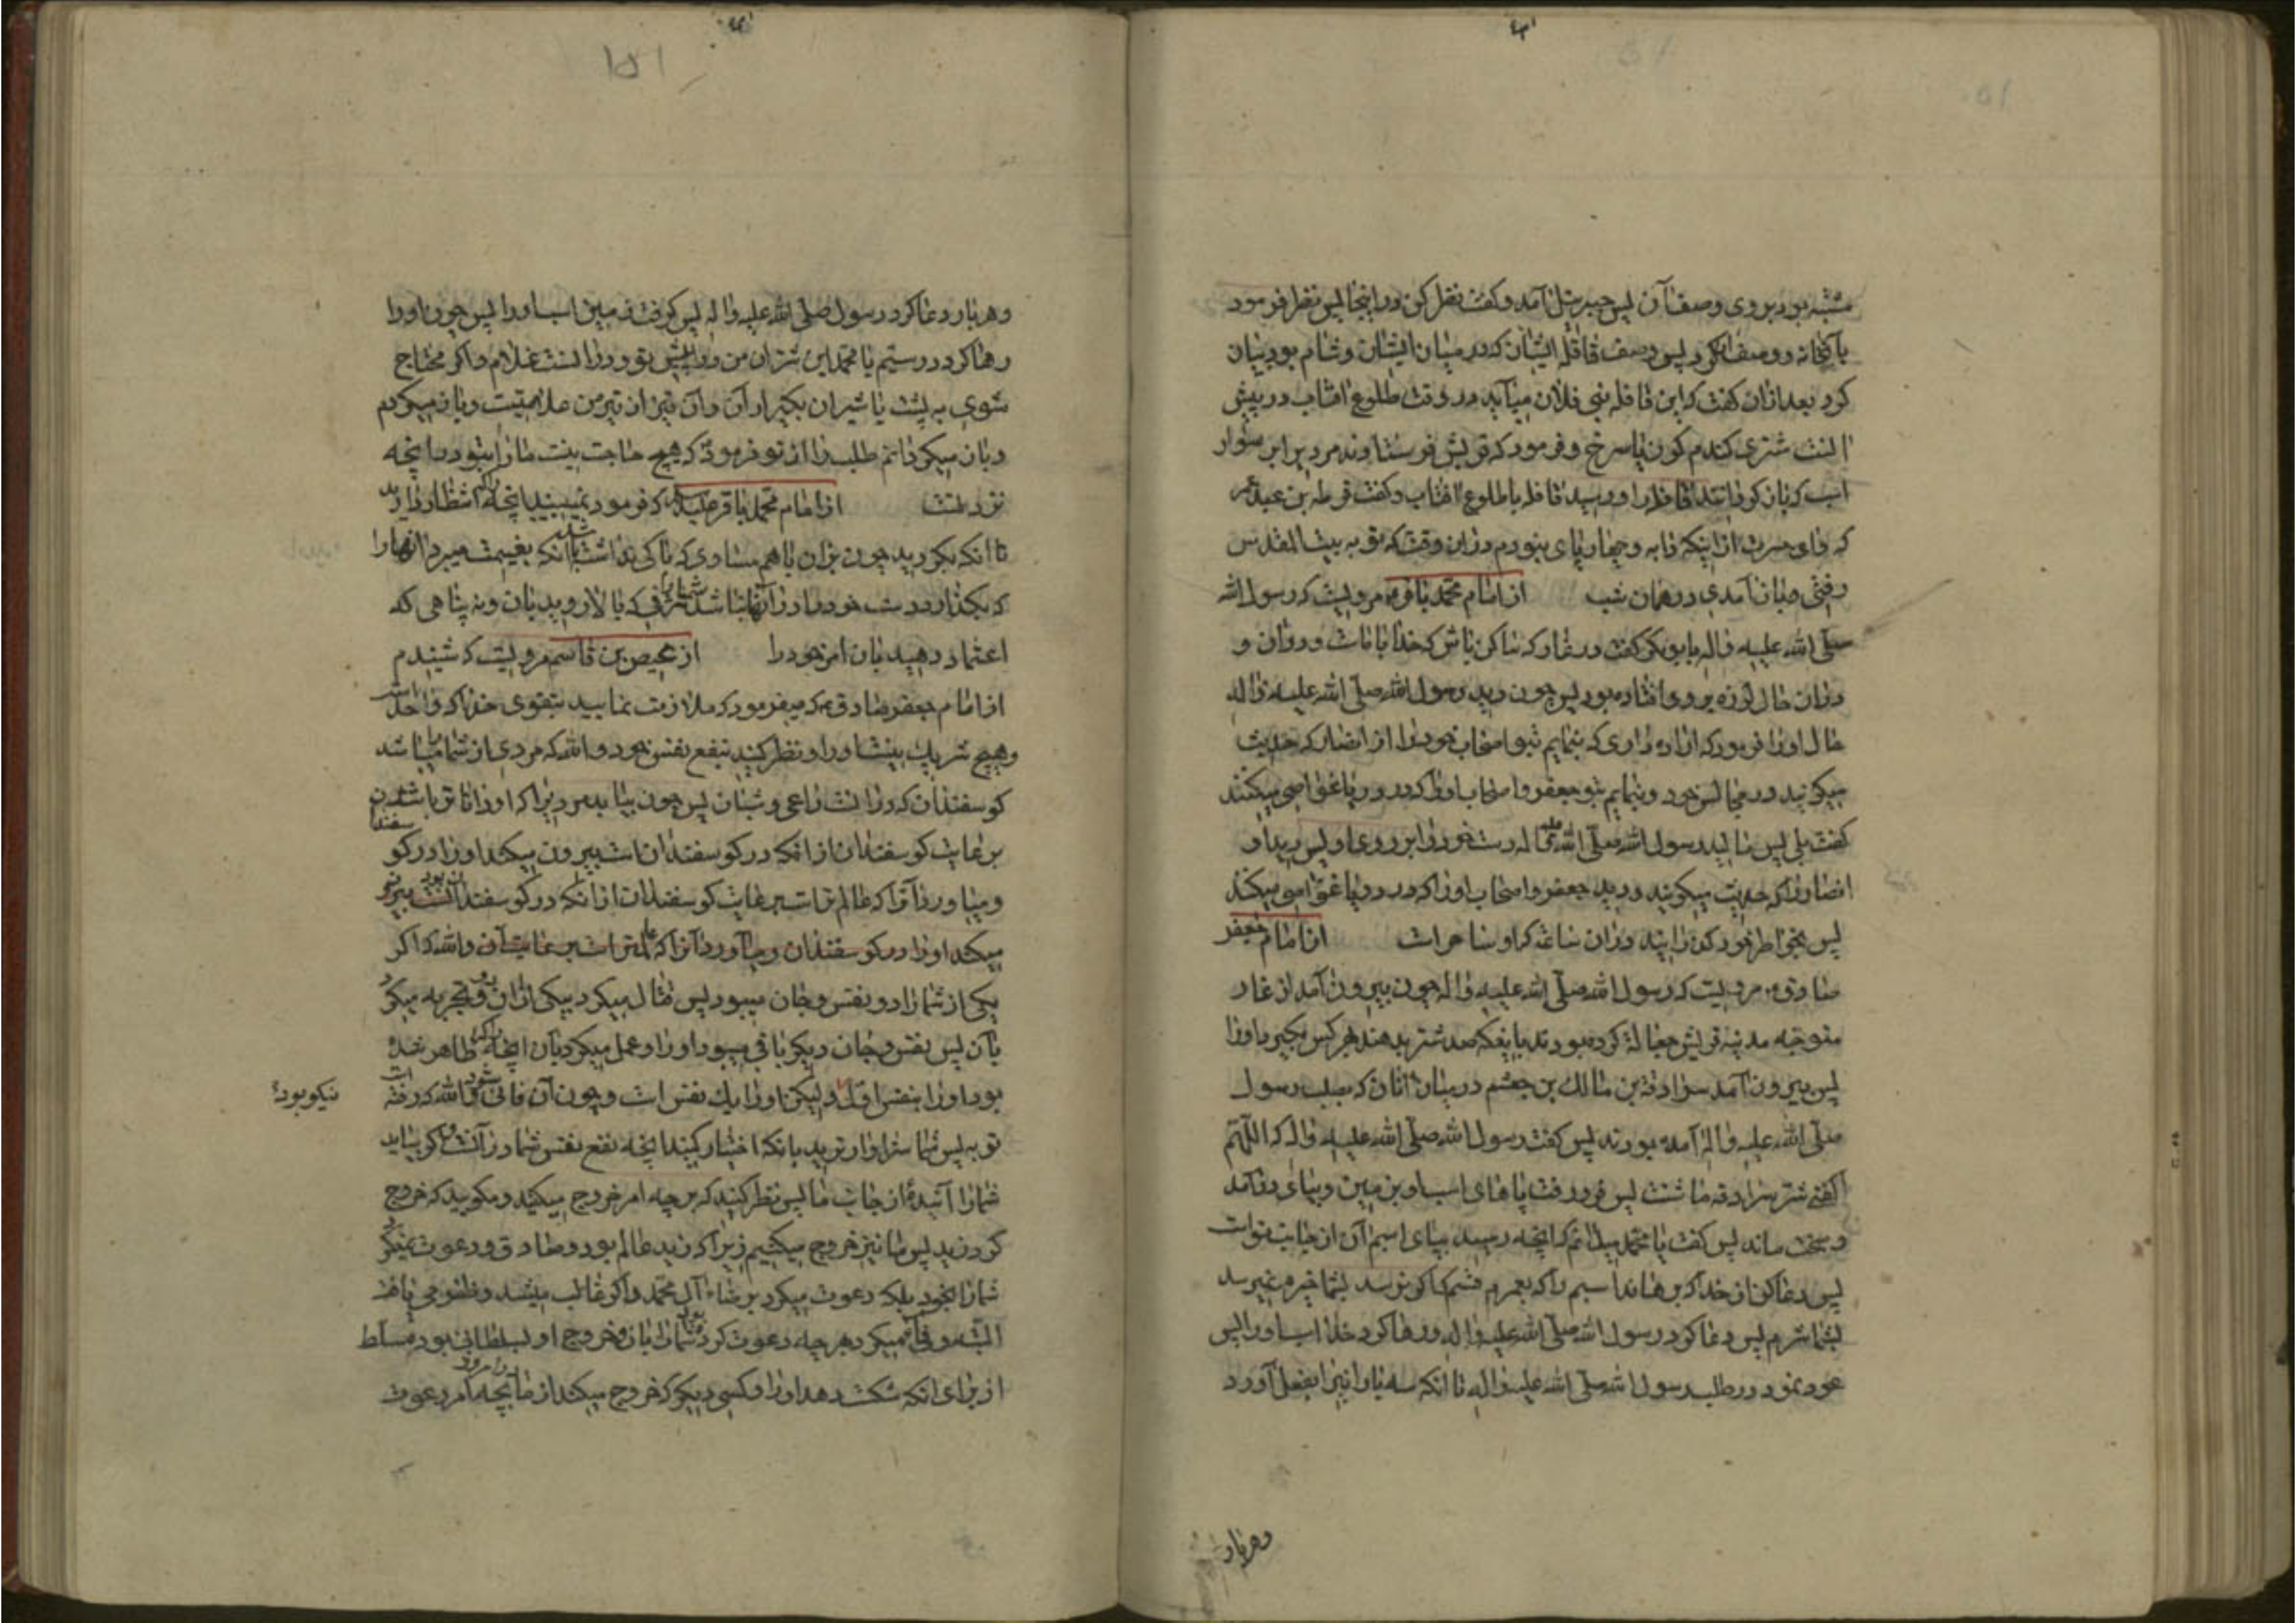 مشتبه بود بروی وصف آن پس جبرئیل آمد و گفت نظر کن در اینجا پس نظر فرمود
بآنخانه و وصف کرد پس وصف قافله ایشان که در میان ایشان و شام بود بیان
کرد بعد از آن گفت که این قافله بنی فلان میآید در وقت طلوع آفتاب در پیش
است شتری گندم گون یا سرخ و فرمود که قریش فرستادند مردیرا بر سوار
اسب که باز گرداند قافله را و رسید قافله با طلوع آفتاب و گفت قرطه بن عبد عمر
که وای حسرت از اینکه دابه و چهار پای نبودم در این وقت که تو به بیت المقدس
رفتی و باز آمدی در همان شب از امام محمد باقر ع مرویست که رسول الله
صلی الله علیه و اله بابوبکر گفت در غار که ساکن باش که خدا با ماست و در آن و
در آن حال لرزه بر وی افتاده بود پس چون دید رسول الله صلی الله علیه و اله
حال او را فرمود که اراده داری که بنمایم بتو اصحاب خود را از انصار که حدیث
میگویند در مجالس خود و بنمایم بتو جعفر و اصحاب او را که در دریا غواصی میکنند
گفت بلی پس مالید رسول الله صلی الله علیه و اله دست خود را بر روی او پس دید او
انصار را که حدیث میگویند و دید جعفر و اصحاب او را که در دریا غواصی میکنند
پس بخواطر خود گذرانید در آن ساعت که او ساحر است از امام جعفر
صادق ع مرویست که رسول الله صلی الله علیه و اله چون بیرون آمد از غار
متوجه مدینه قریش جعاله کرده بودند باینکه صد شتر بدهند هر کس بگیرد او را
پس بیرون آمد سراقة بن مالک بن جعشم در میان آنان که بطلب رسول
صلی الله علیه و اله آمده بودند پس گفت رسول الله صلی الله علیه و اله که اللهم
اکفنی شر سراقه ما شئت پس فرو رفت پاهای اسب او بزمین و بپای درآمد
و سخت ماند پس گفت یا محمد میدانم که آنچه رسید بپای اسبم آن از جانب تو است
پس دعا کن از خدا که برهاند اسبم را که بعمرم قسم که اگر نرسد بشما خیرم نمیرسد
بشما شرم پس دعا کرد رسول الله صلی الله علیه و اله و رها کرد خدا اسب او را پس
عود نمود در طلب رسول الله صلی الله علیه و اله تا آنکه سه بار اینرا بفعل آورد
وهربار
و هر بار دعا کرد رسول صلی الله علیه و اله پس گرفت زمین اسب او را پس چون او را
رها کرد در سیم یا محمد این شتران من در پیش تو و در آنست غلامم و اگر محتاج
شوی به پشت یا شیر آن بگیر از آن و آن تیر از تیر من علامتیست و باز میگردم
و باز میگردانم طلب را از تو فرمود که هیچ حاجت نیست ما را بتو و بآنچه
نزد تست از امام محمد باقر علیه السلام که فرمود نمیبینید آنچه را که انتظار دارید
تا آنکه بگردید چون بزان باهم مساوی که باکی نداشته باشد آنکه بغنیمت میبرد آنها را
که بگذارد دست خود را در آنها نباشد شما را شرفی که بالا روید بآن و نه پناهی که
اعتماد دهید بآن امر خود را از عیص بن قاسم مرویست که شنیدم
از امام جعفر صادق ع که میفرمود که ملازمت نمایید بتقوی خدا که واحد است
و هیچ شریک نیست او را و نظر کنید بنفع نفس خود و الله که مردی از شما میباشد
گوسفندان که در آنست راعی و شبان پس چون بیابد مردیرا که او داناتر باشد بدن
برعایت گوسفندان از آنکه در گوسفندان است بیرون میکند او را و در گوسفند
و میآورد آنرا که عالم تر است برعایت گوسفندان از آنکه در گوسفندان بود
میکند او را در گوسفندان و میآورد آنرا که عالمتر است برعایت آن والله که اگر
یکی از شما را دو نفس و جان میبود پس قتال میکرد بیکی از آن دو و تجربه میکرد
بآن پس نفس و جان دیگر باقی میبود او را و عمل میکرد بآن آنچه را که ظاهر شده
بود او را بنفس اول ولیکن او را یک نفس است و چون آن فانی شود والله که رفته است
نیکو بود
توبه پس شما سزاوارترید بآنکه اختیار کنید آنچه نفع نفس شما در آنست و اگر بیاید
شما را آینده از جانب ما پس نظر کنید که بر چه امر خروج میکنید و مگویید که خروج
کرد زید پس ما نیز خروج میکنیم زیرا که زید عالم بود و صادق و دعوت نمیکرد
شما را بخود بلکه دعوت میکرد برضاء آل محمد و اگر غالب میشد و ظفر می یافت
البته وفا میکرد بهر چه دعوت کرد شما را بآن و خروج او بسلطانی بود مسلط
از برای آنکه شکست دهد او را و کسی دیگر که خروج میکند از ما بچه امر دعوت